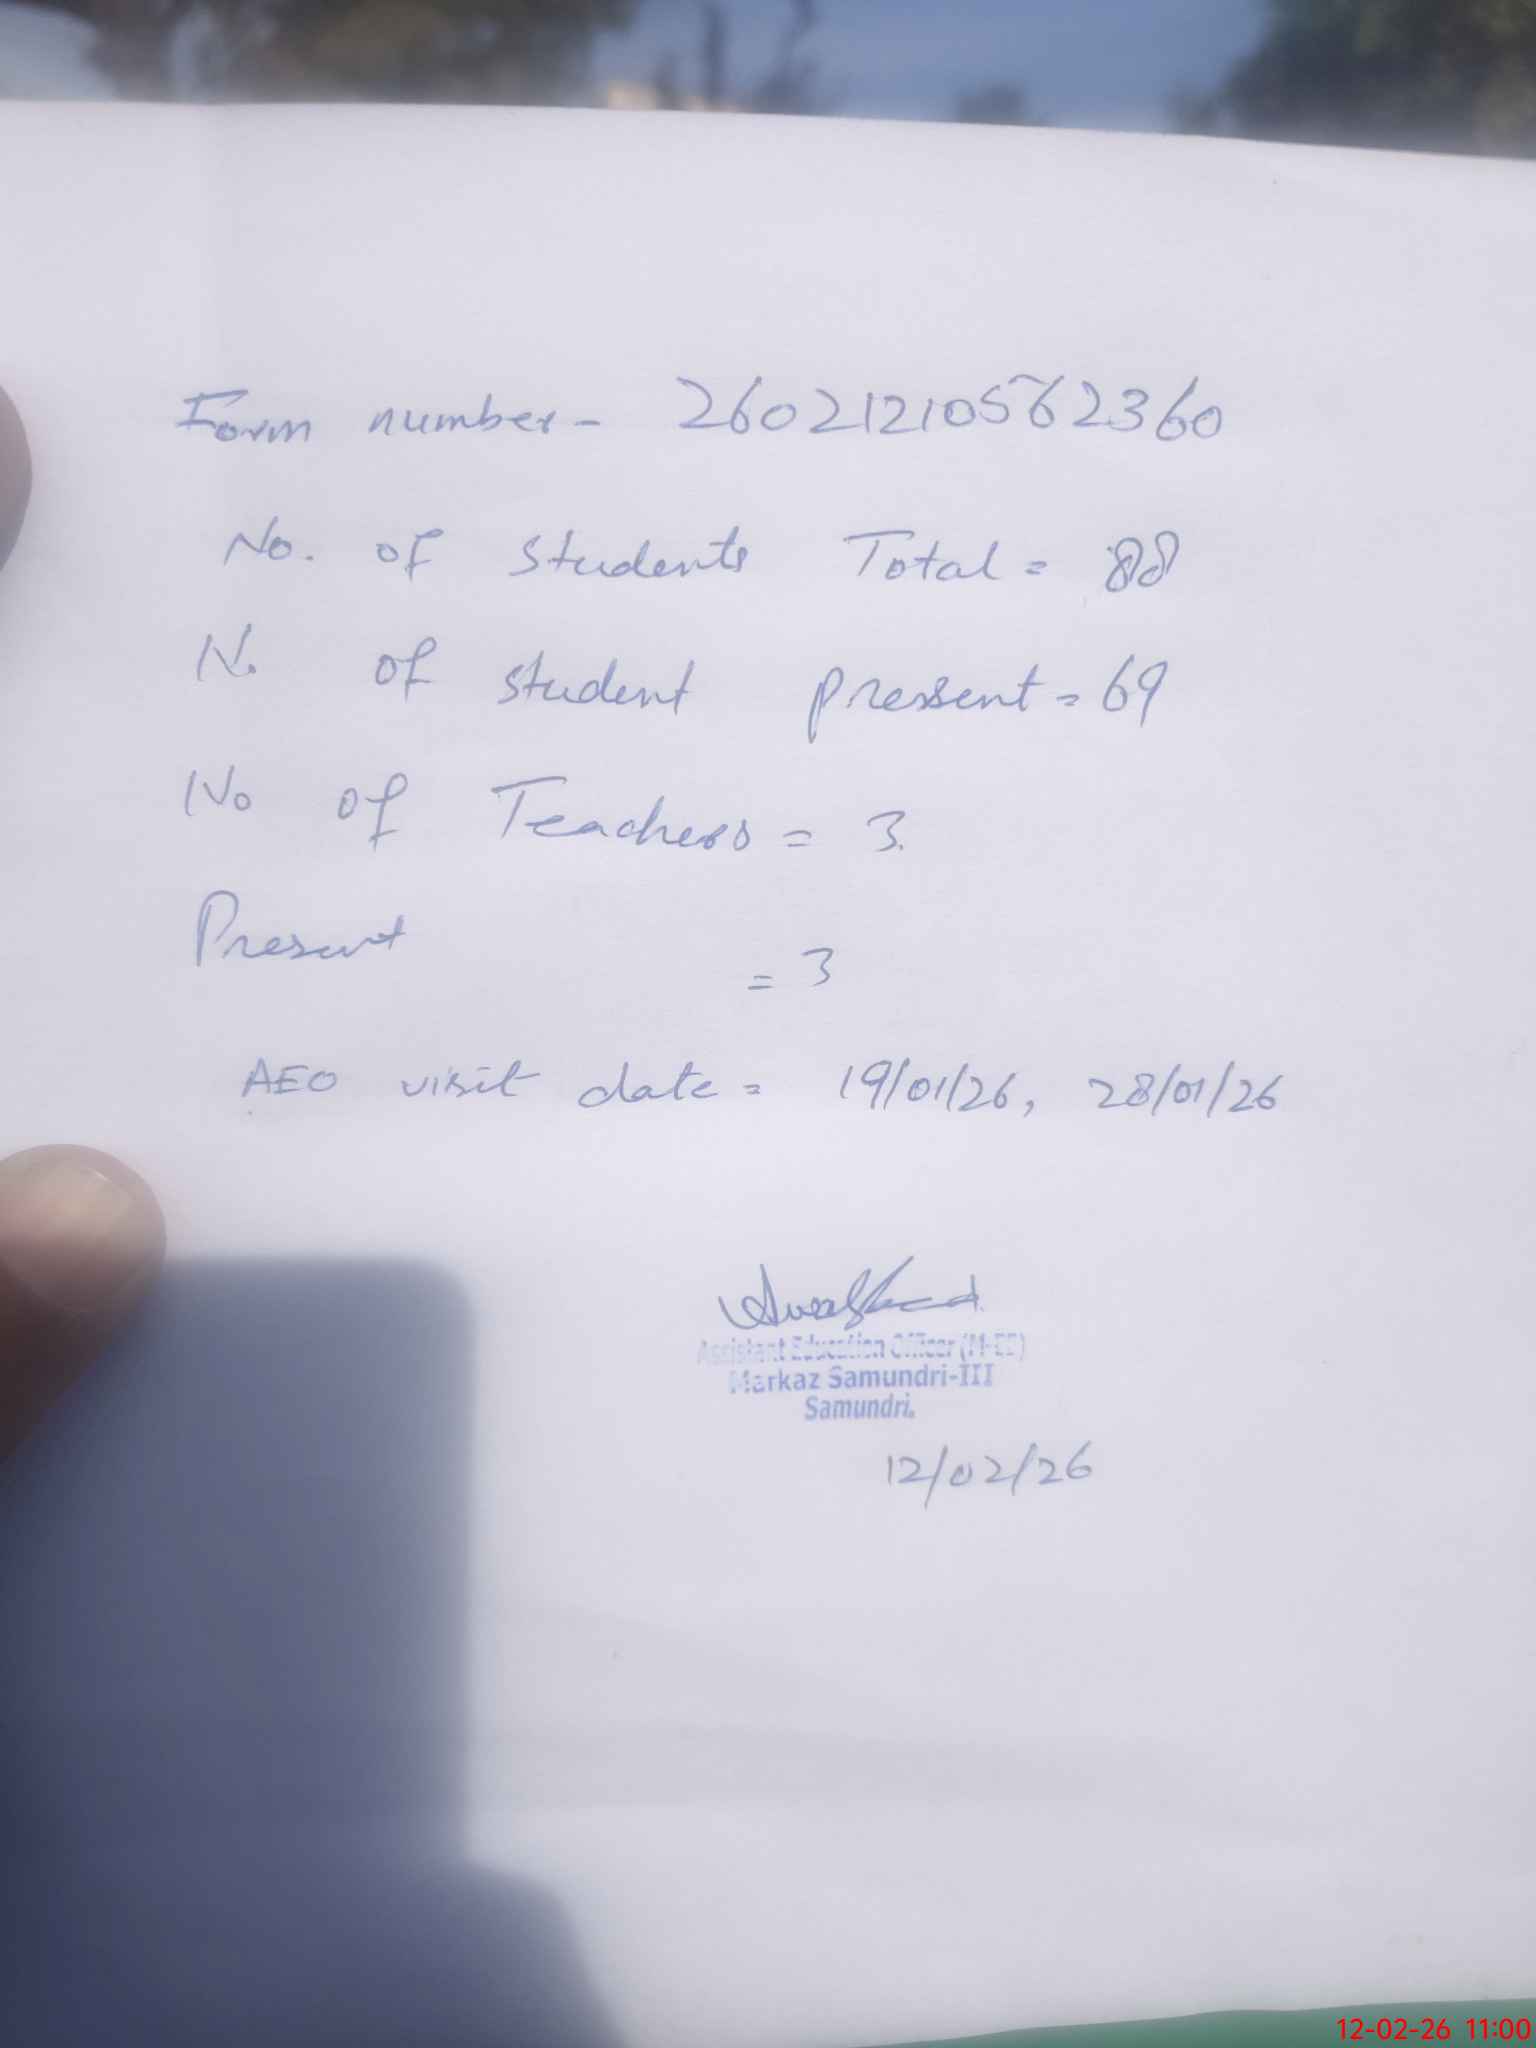 Form number - 26021210562360
No. of students Total = 88
No. of student pressent = 69
No of Teachers = 3.
Present = 3
AEO visit date = 19/01/26, 28/01/26
Assistant Education Officer (M-EE)
Markaz Samundri-III
Samundri.
12/02/26
12-02-26 11:00